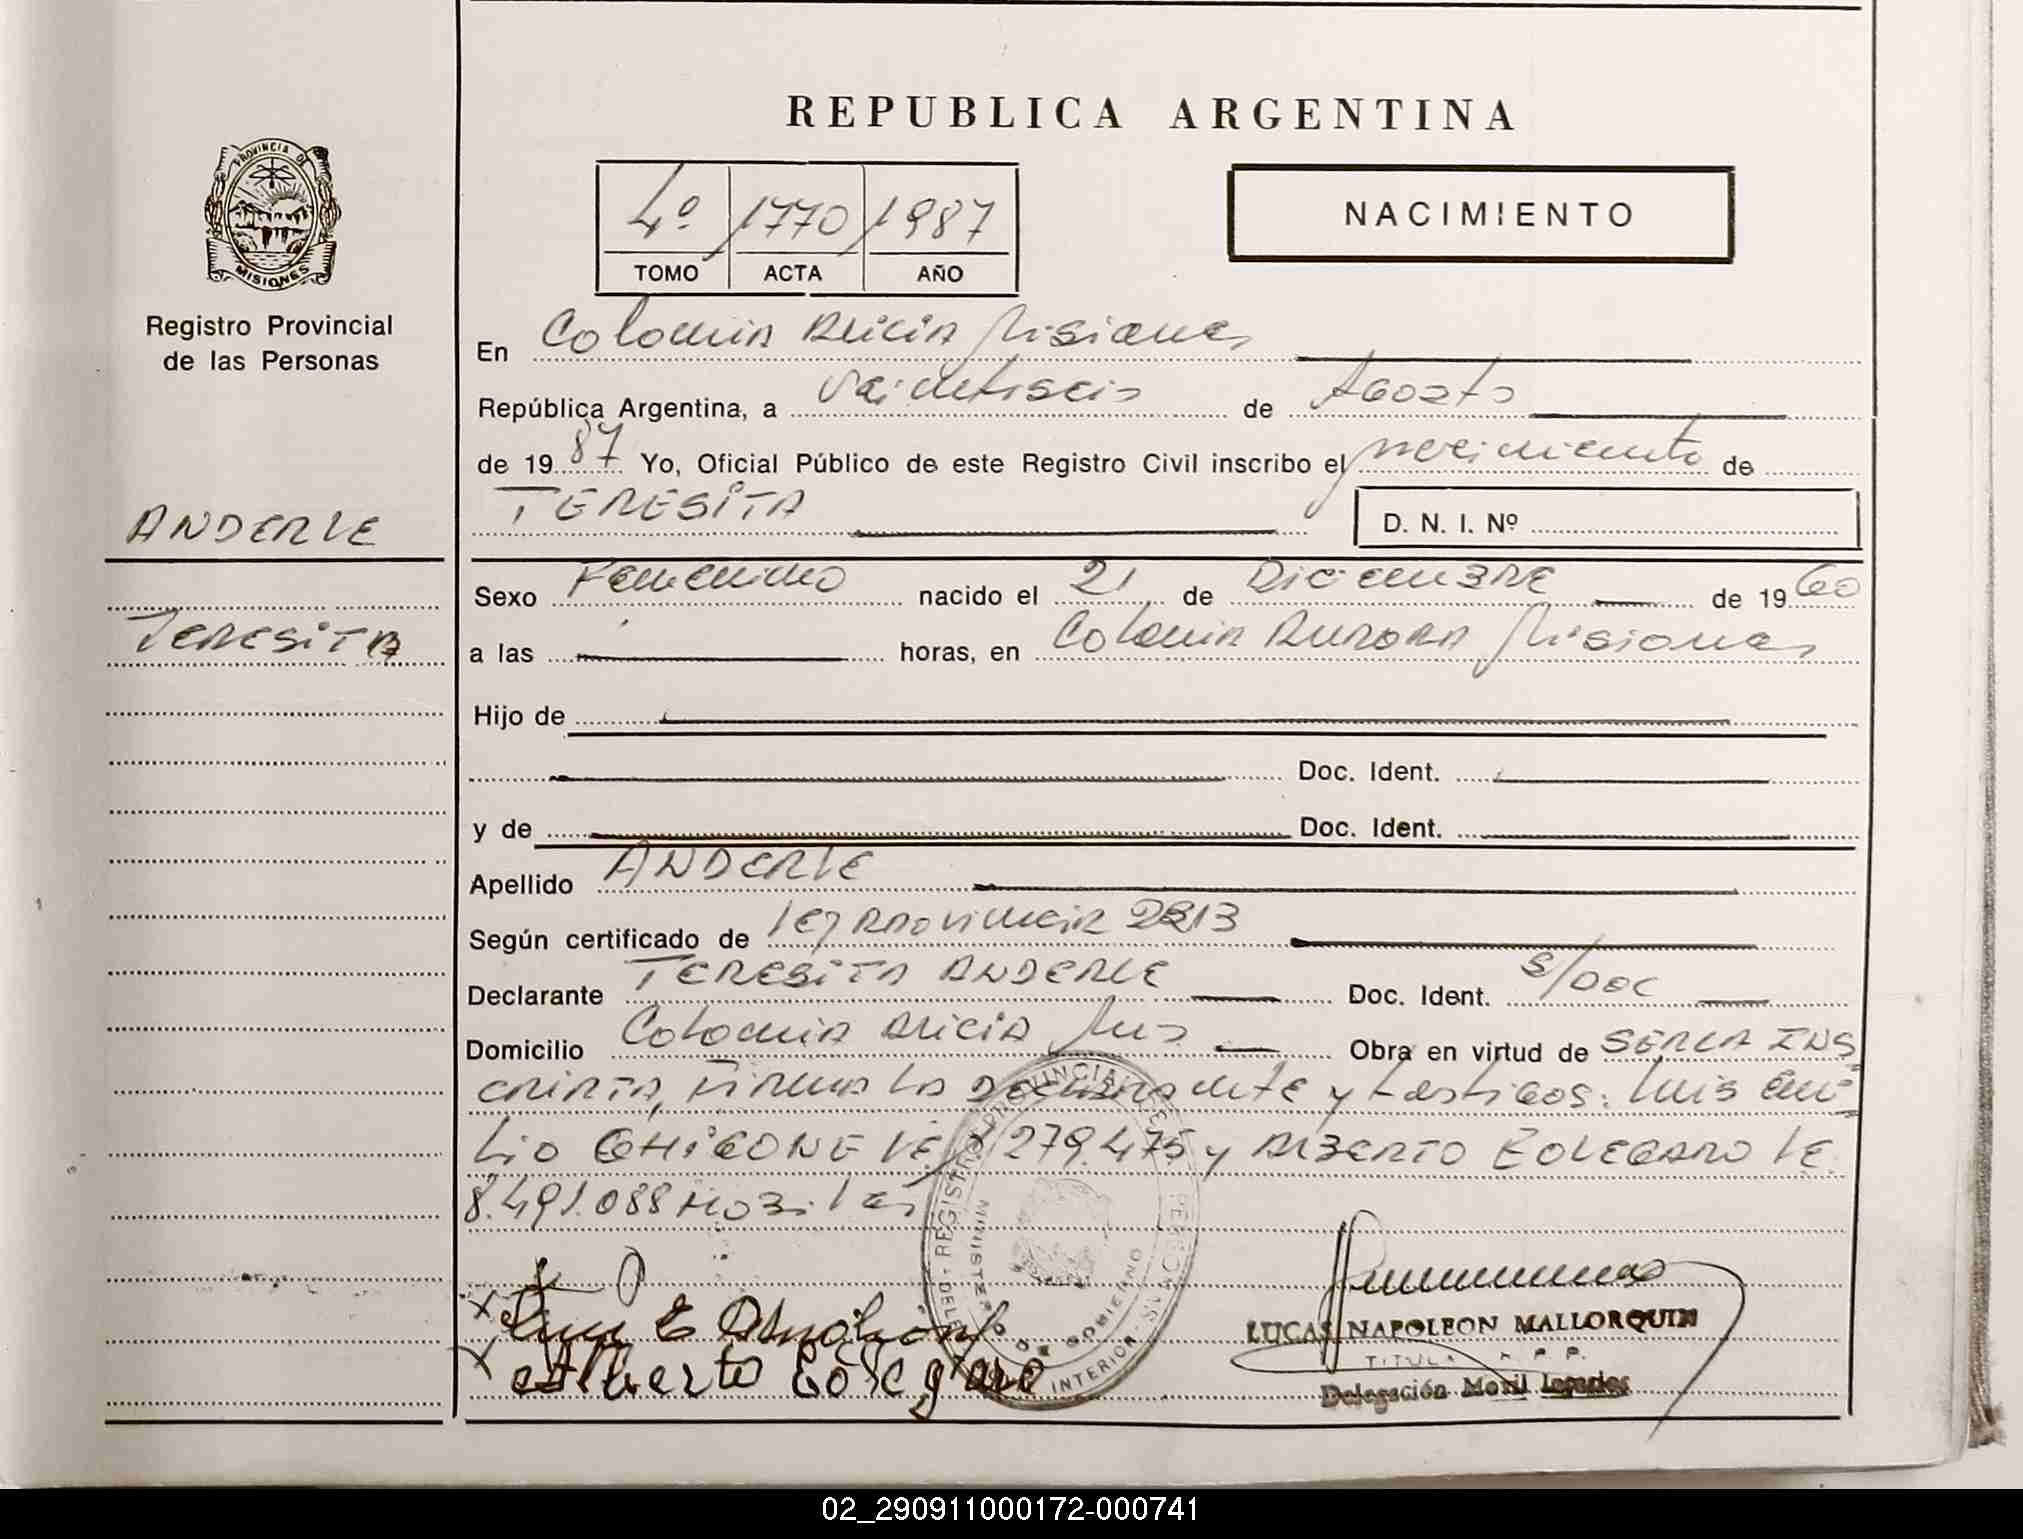 REPUBLICA ARGENTINA
PROVINCIA DE
MISIONES
Registro Provincial
de las Personas
4º 1770 1987
TOMO ACTA AÑO
NACIMIENTO
En Colonia Alicia Misiones
República Argentina, a Veintiseis de Agosto
de 1987 Yo, Oficial Público de este Registro Civil inscribo el nacimiento de
TERESITA
D. N. I. Nº
ANDERLE
TERESITA
Sexo Femenino nacido el 21 de Diciembre de 1960
a las horas, en Colonia Aurora Misiones
Hijo de
Doc. Ident.
y de Doc. Ident.
Apellido ANDERLE
Según certificado de ley Provincial 2213
Declarante TERESITA ANDERLE Doc. Ident. S/DOC
Domicilio Colonia Alicia Mis Obra en virtud de SERLA INS
CRIPTA, FIRMA LA Declarante y testigos: Luis Emi
Lio LE 279.475 y ALBERTO LE
8.491.088 Habiles
Alberto
LUCAS NAPOLEON MALLORQUIN
TITULAR R P P.
Delegación Movil
REGISTRO PROVINCIAL DE
PERSONAS
MINISTERIO DE GOBIERNO
INTERIOR
02_290911000172-000741